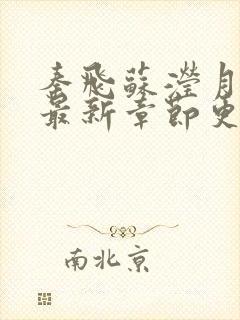 秦飛蘇瀅月
最新章節更
南北京